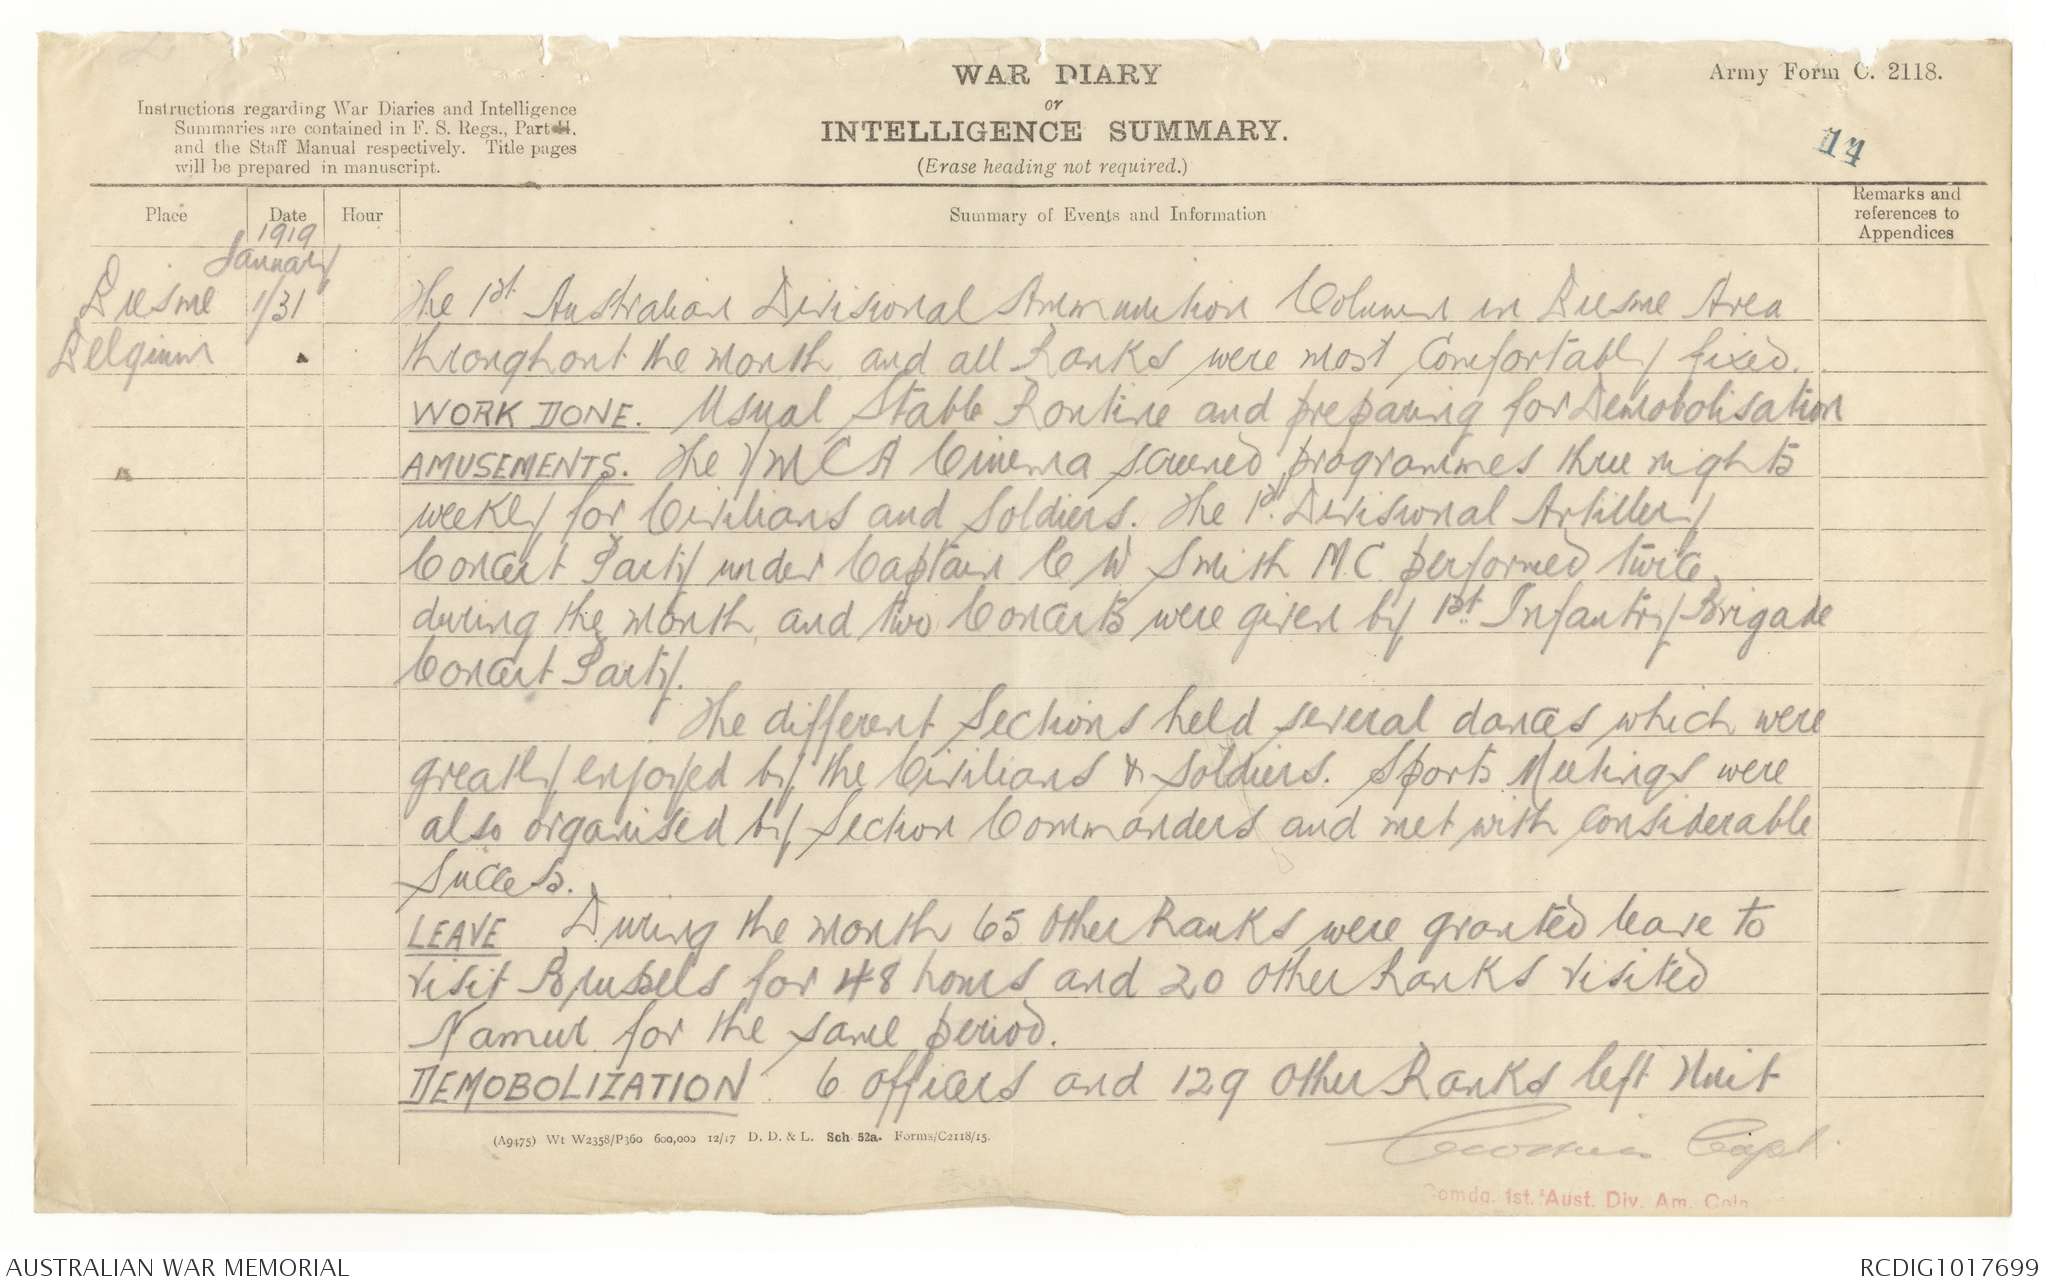 WAR DIARY
or
INTELLIGENCE SUMMARY.
(Erase heading not required.)
Army Form C. 2118.
Instructions regarding War Diaries and Intelligence
Summaries are contained in F. S. Regs., Part II.
and the Staff Manual respectively. Title pages
will be prepared in manuscript.
14
Place
Date
Hour
Summary of Events and Information
Remarks and
references to
Appendices
1919
January
Biesme 1/31 The 1st Australian Divisional Ammunition Column in Biesme Area
Belgium throughout the month and all Ranks were most Comfortably fixed.
WORK DONE. Usual Stable Routine and preparing for Demobolisation
AMUSEMENTS. The YMCA Cinema screened programmes three nights
weekly for Civilians and Soldiers. The 1st Divisional Artillery
Concert Party under Captain C W Smith M.C. performed twice
during the month and two Concerts were given by 1st Infantry Brigade
Concert Party.
The different Sections held several dances which were
greatly enjoyed by the Civilians & Soldiers. Sports Meetings were
also organised by Section Commanders and met with considerable
success.
LEAVE During the month 65 Other Ranks were granted leave to
visit Brussels for 48 hours and 20 Other Ranks visited
Namur for the same period.
DEMOBOLIZATION 6 Officers and 129 Other Ranks left Unit
(A9475) Wt W2358/P360 600,000 12/17 D. D. & L. Sch 52a. Forms/C2118/15.
Capt.
Comdg. 1st. Aust. Div. Am. Coln
AUSTRALIAN WAR MEMORIAL
RCDIG1017699